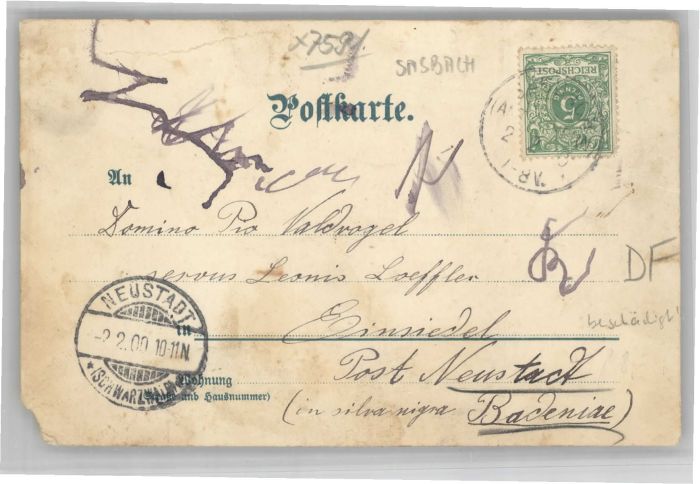 x7591
SASBACH
REICHSPOST
5
Postkarte.
An
Domino Pio Waldvogel
servus Leonis Loeffler
DF
beschädigt!
in Einsiedel
NEUSTADT
-2.2.00 10-11N
*(SCHWARZWALD)
Post Neustadt
Wohnung
(Straße und Hausnummer)
(in silva nigra Badeniae)